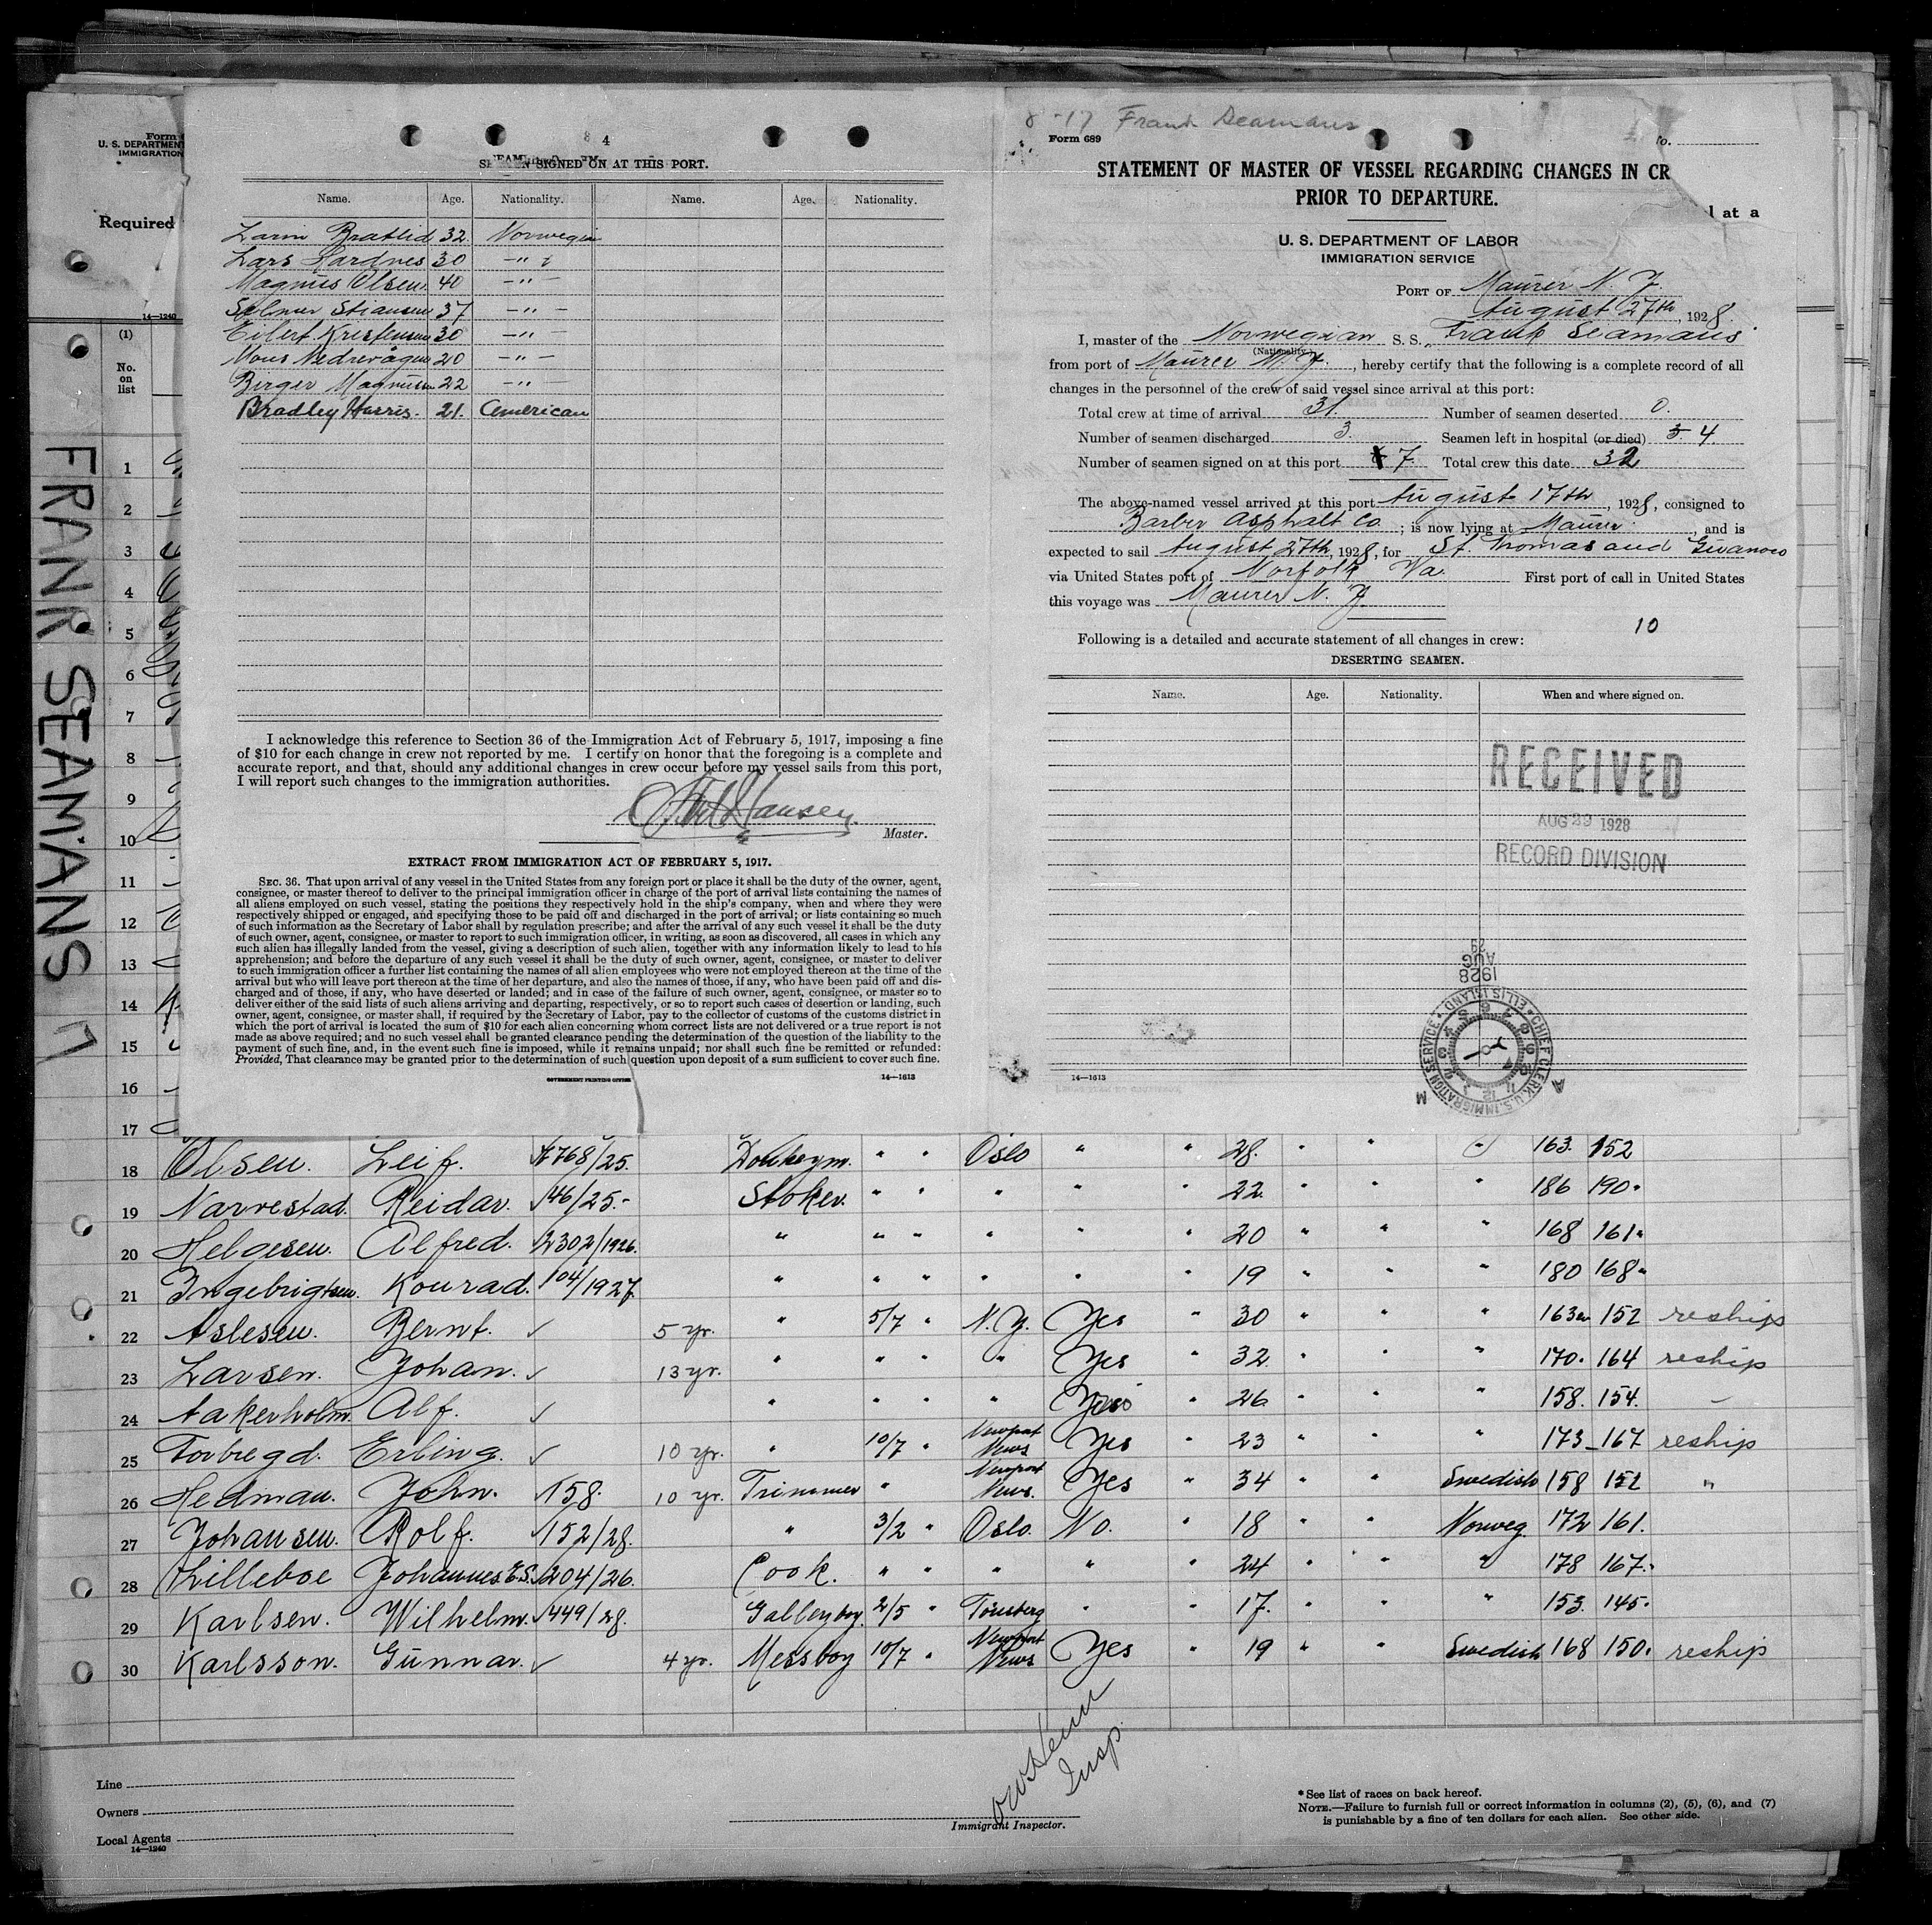 FRANK SEAMANS 17
Form
U. S. DEPARTMENT
IMMIGRATION
Required
14—1240
(1)
No.
on
list
1
2
3
4
5
6
7
8
9
10
11
12
13
14
15
16
17
4
SEAMEN SIGNED ON AT THIS PORT.
Name. Age. Nationality. Name. Age. Nationality.
Bratlid 32. Norwegian
Lars Hardnes 30 -"-
Magnus Olsen. 40 -"-
Selmer Stiansen 37 -"-
Eilert Kristensen 30 -"-
Mons Nedrevågen 20 -"-
Birger Magnussen 22 -"-
Bradley Harris. 21. American
I acknowledge this reference to Section 36 of the Immigration Act of February 5, 1917, imposing a fine
of $10 for each change in crew not reported by me. I certify on honor that the foregoing is a complete and
accurate report, and that, should any additional changes in crew occur before my vessel sails from this port,
I will report such changes to the immigration authorities.
Hansen.
Master.
EXTRACT FROM IMMIGRATION ACT OF FEBRUARY 5, 1917.
SEC. 36. That upon arrival of any vessel in the United States from any foreign port or place it shall be the duty of the owner, agent,
consignee, or master thereof to deliver to the principal immigration officer in charge of the port of arrival lists containing the names of
all aliens employed on such vessel, stating the positions they respectively hold in the ship's company, when and where they were
respectively shipped or engaged, and specifying those to be paid off and discharged in the port of arrival; or lists containing so much
of such information as the Secretary of Labor shall by regulation prescribe; and after the arrival of any such vessel it shall be the duty
of such owner, agent, consignee, or master to report to such immigration officer, in writing, as soon as discovered, all cases in which any
such alien has illegally landed from the vessel, giving a description of such alien, together with any information likely to lead to his
apprehension; and before the departure of any such vessel it shall be the duty of such owner, agent, consignee, or master to deliver
to such immigration officer a further list containing the names of all alien employees who were not employed thereon at the time of the
arrival but who will leave port thereon at the time of her departure, and also the names of those, if any, who have been paid off and dis-
charged and of those, if any, who have deserted or landed; and in case of the failure of such owner, agent, consignee, or master so to
deliver either of the said lists of such aliens arriving and departing, respectively, or so to report such cases of desertion or landing, such
owner, agent, consignee, or master shall, if required by the Secretary of Labor, pay to the collector of customs of the customs district in
which the port of arrival is located the sum of $10 for each alien concerning whom correct lists are not delivered or a true report is not
made as above required; and no such vessel shall be granted clearance pending the determination of the question of the liability to the
payment of such fine, and, in the event such fine is imposed, while it remains unpaid; nor shall such fine be remitted or refunded:
Provided, That clearance may be granted prior to the determination of such question upon deposit of a sum sufficient to cover such fine.
GOVERNMENT PRINTING OFFICE 14—1613
8-17 Frank Seamans
Form 689 No.
STATEMENT OF MASTER OF VESSEL REGARDING CHANGES IN CR
PRIOR TO DEPARTURE.
l at a
U. S. DEPARTMENT OF LABOR
IMMIGRATION SERVICE
PORT OF Maurer N. J.
August 27th, 1928.
I, master of the Norwegian S. S. Frank Seamans
(Nationality)
from port of Maurer N. J., hereby certify that the following is a complete record of all
changes in the personnel of the crew of said vessel since arrival at this port:
Total crew at time of arrival 31. Number of seamen deserted 0.
Number of seamen discharged 3. Seamen left in hospital (or died) 3 4.
Number of seamen signed on at this port 7. Total crew this date 32
The above-named vessel arrived at this port August 17th, 1928, consigned to
Barber Asphalt Co; is now lying at Maurer, and is
expected to sail August 27th, 1928, for St. Thomas and Guanoco
via United States port of Norfolk Va. First port of call in United States
this voyage was Maurer N. J.
10
Following is a detailed and accurate statement of all changes in crew:
DESERTING SEAMEN.
Name. Age. Nationality. When and where signed on.
RECEIVED
AUG 29 1928
RECORD DIVISION
29
AUG
1928
CHIEF CLERK, U.S. IMMIGRATION SERVICE ELLIS ISLAND
A M
14—1613
18 Olsen. Leif. 768/25. Donkeym. " " Oslo " " 28. " " " 163. 152
19 Narrestad. Reidar. 46/25.- Stoker. " " " " " 22 " " " 186 190.
20 Helgesen. Alfred. 2302/1926. " " " " " " 20 " " " 168 161.
21 Ingebrigtsen. Konrad. 104/1927. " " " " " " 19 " " " 180 168.
22 Aslesen. Bernt. ✓ 5 yr. " 5/7 " N.Y. Yes " 30 " " " 163 152 reships
23 Larsen. Johan. ✓ 13 yr. " " " " Yes " 32 " " " 170. 164 reship
24 Aakerholm. Alf. ✓ " " " " Yes " 26 " " " 158. 154. -
25 Torbregd. Erling. ✓ 10 yr. " 10/7 " Newport News Yes " 23 " " " 173-167 reship
26 Hedman. John. ✓158. 10 yr. Trimmer " Newport News. Yes " 34 " " Swedish 158 152 "
27 Johansen. Rolf. ✓152/28. " 3/2 " Oslo. No. " 18 " " Norweg. 172 161.
28 Lilleboe Johannes E.S. 204/26. Cook. " " " " " 24 " " " 178 167.
29 Karlsen. Wilhelm. 449/28. Galleyboy. 2/5 " Tönsberg " " 17. " " " 153. 145.
30 Karlsson. Gunnar. ✓ 4 yr. Messboy 10/7 " Newport News Yes " 19 " " Swedish 168 150. reship
Insp.
Line
Owners
Local Agents
14—1240
Immigrant Inspector.
* See list of races on back hereof.
NOTE.—Failure to furnish full or correct information in columns (2), (5), (6), and (7)
is punishable by a fine of ten dollars for each alien. See other side.